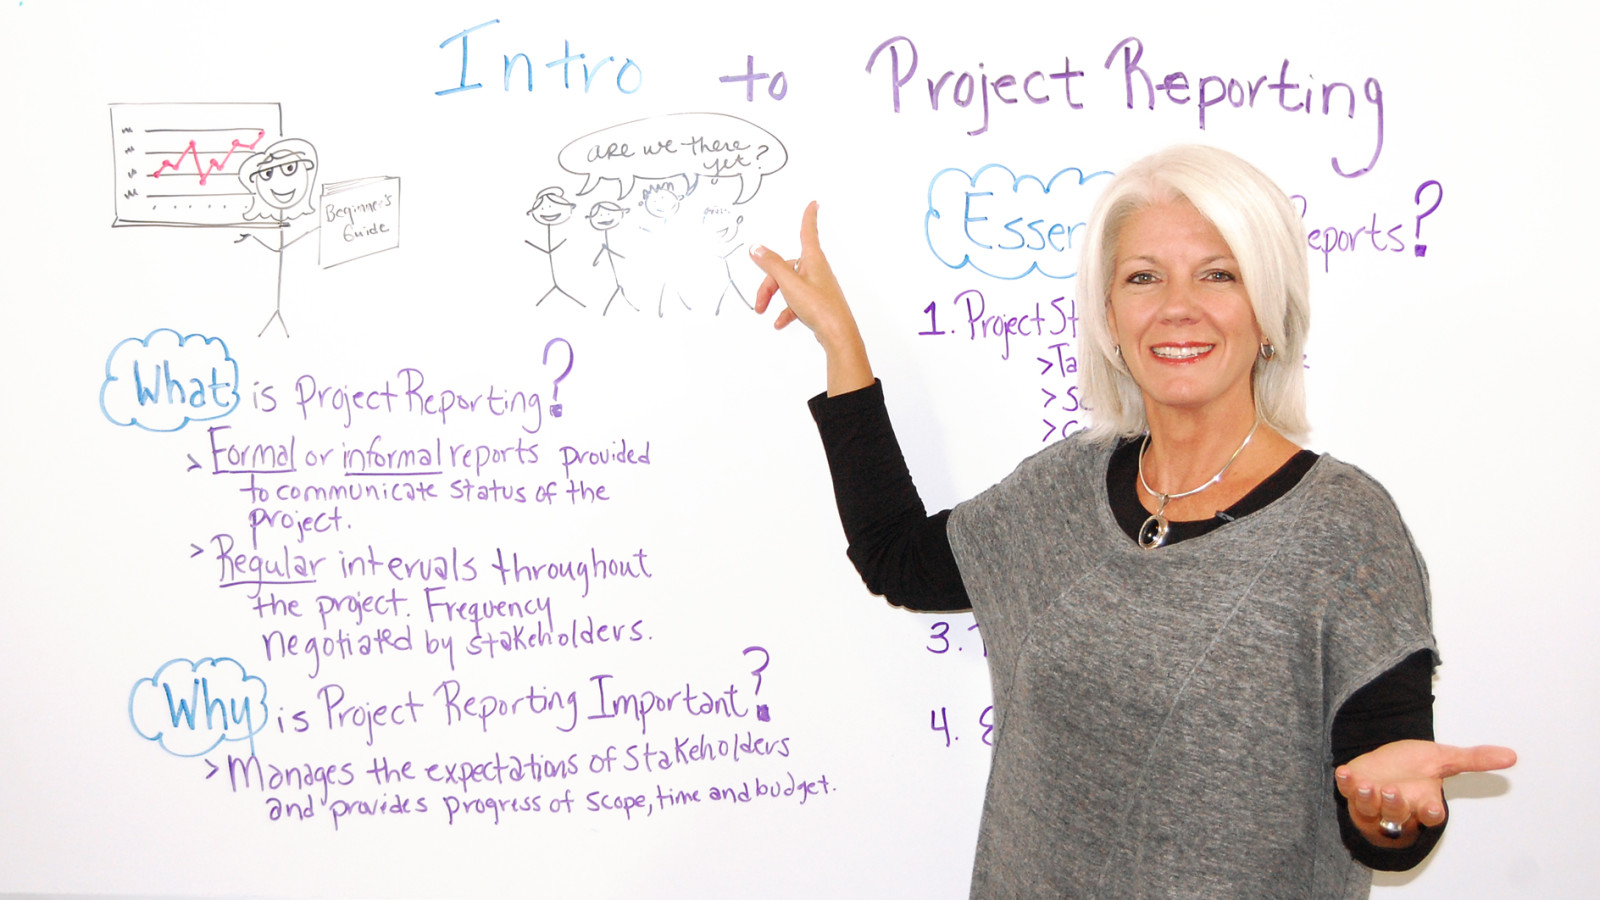 Intro to Project Reporting
Beginner's
Guide
are we there
yet?
What is Project Reporting?
> Formal or informal reports provided
to communicate status of the
project.
> Regular intervals throughout
the project. Frequency
negotiated by stakeholders.
Why is Project Reporting Important?
> Manages the expectations of Stakeholders
and provides progress of scope, time and budget.
Esse
eports?
1. Project St
> Ta
>
>
3.
4.